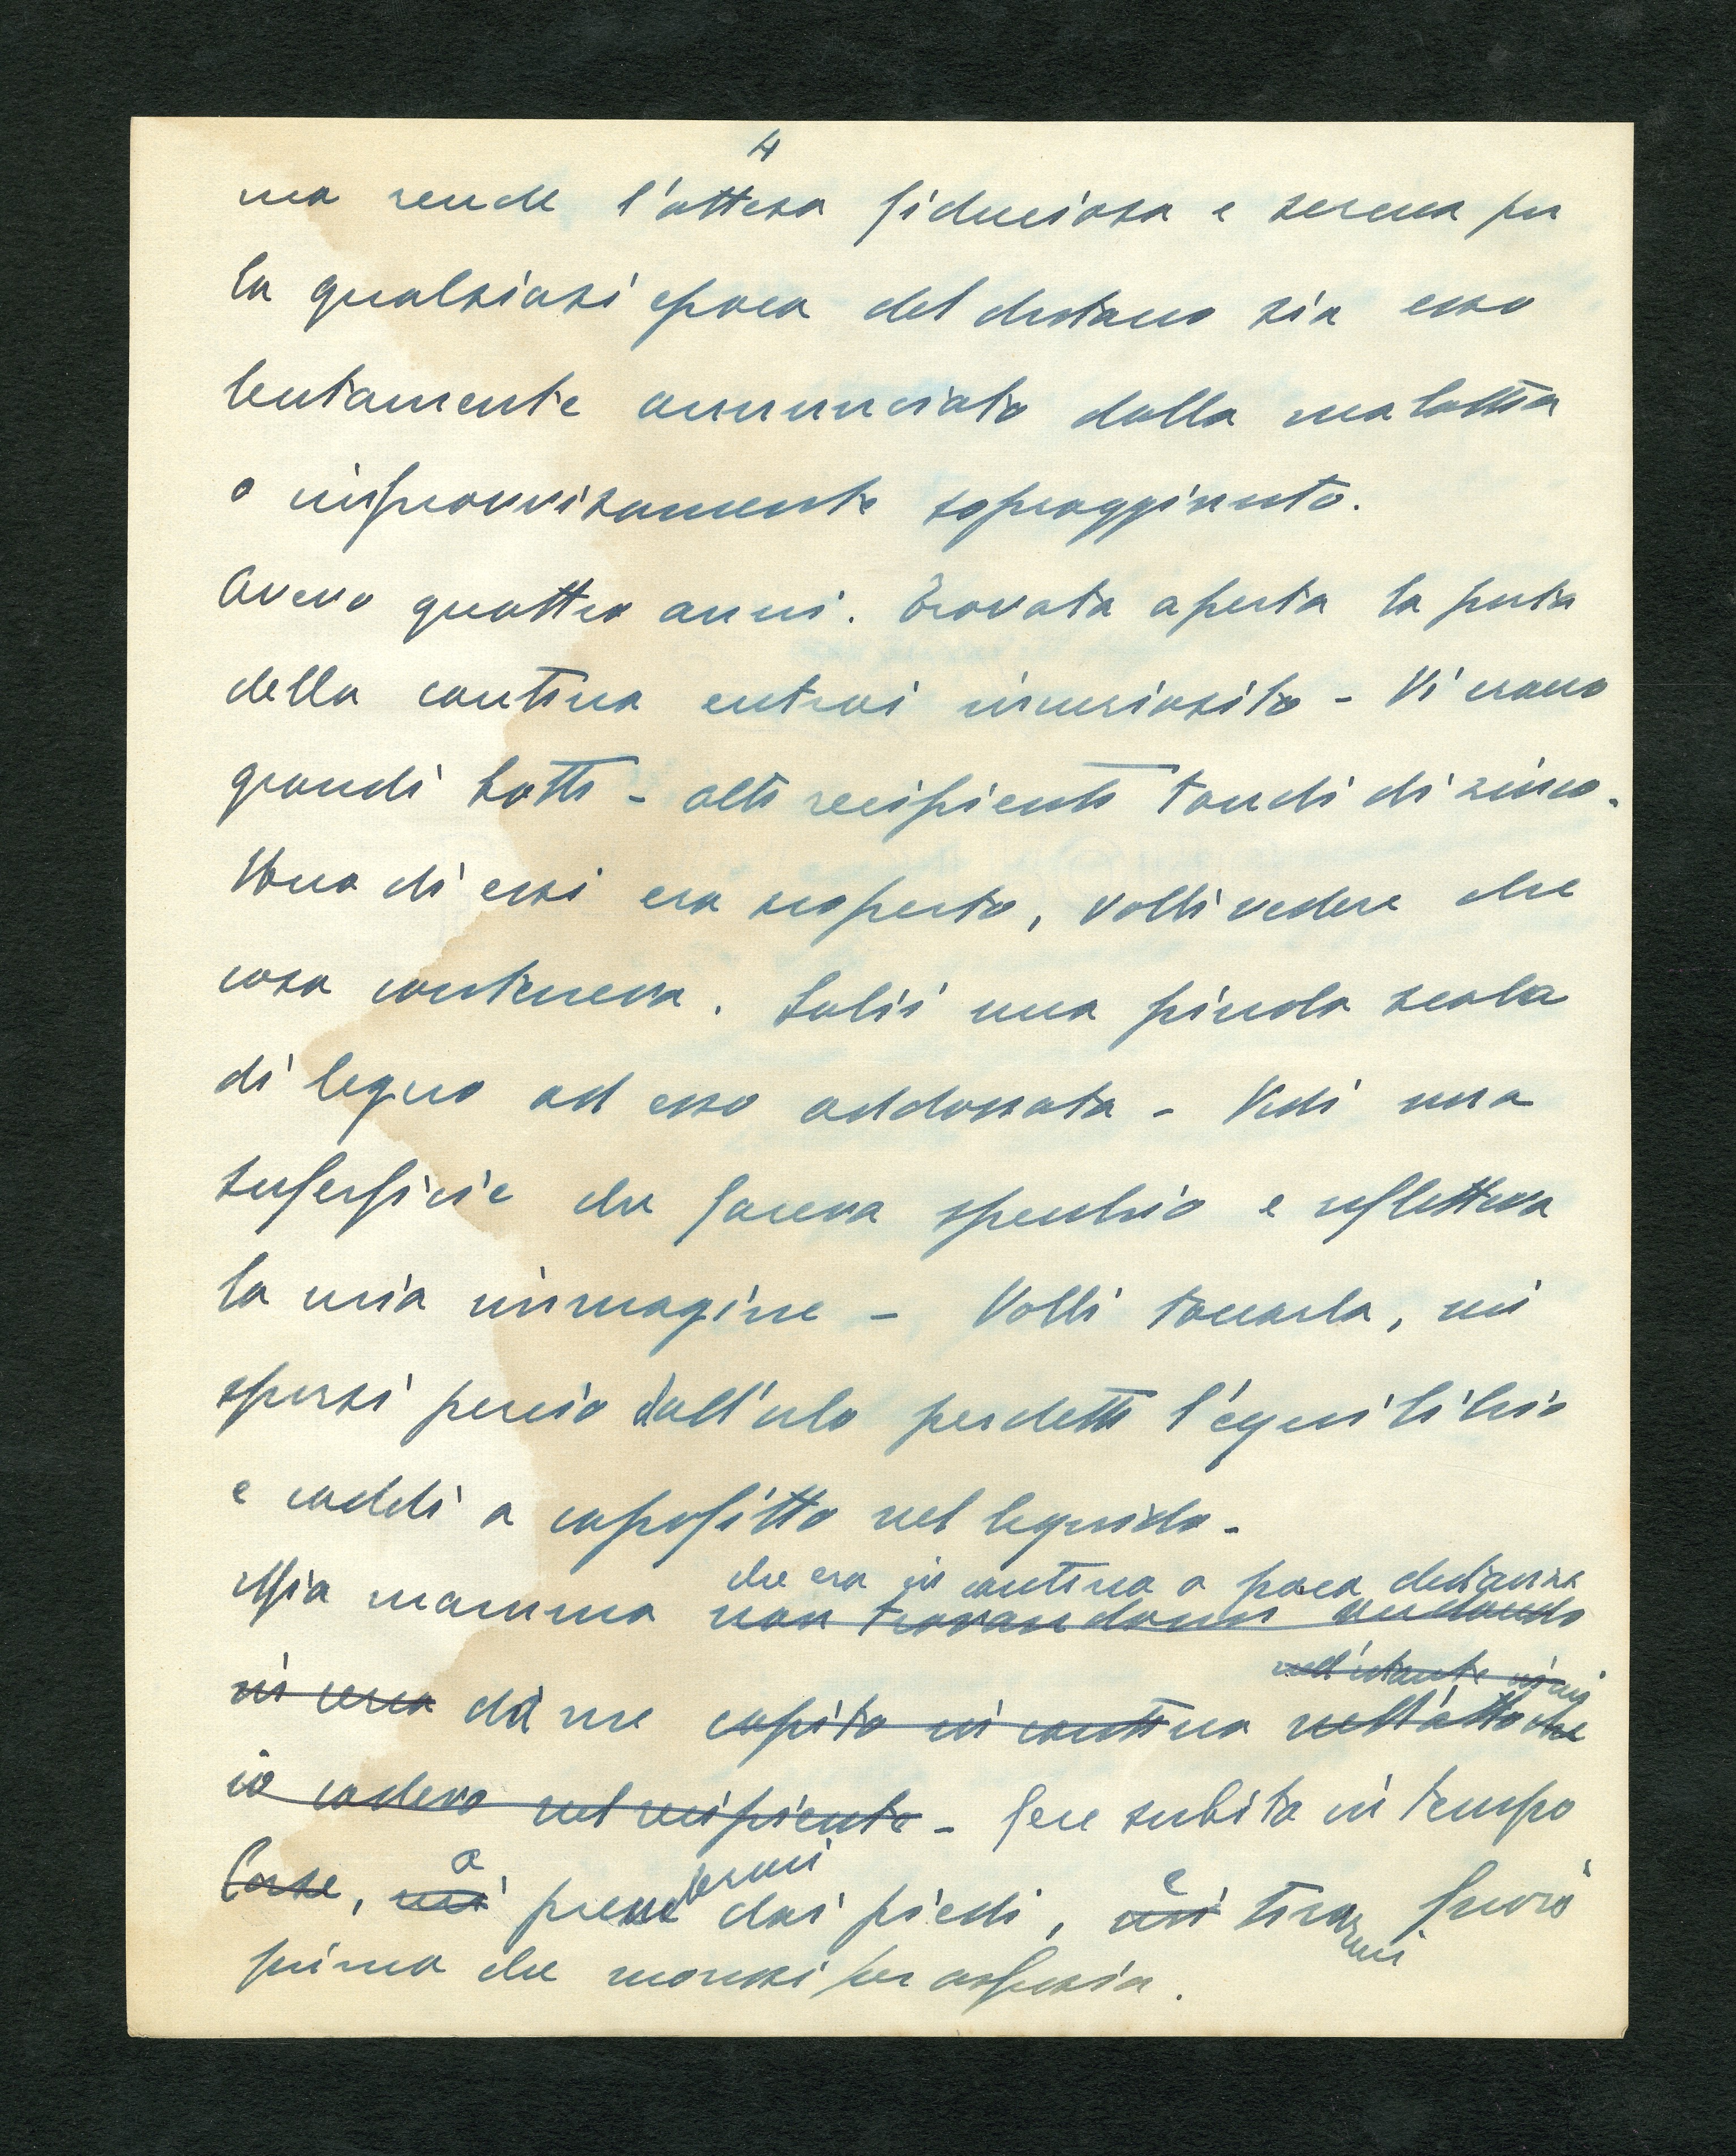 4
ma rende l'attesa fiduciosa e serena per
la qualsiasi epoca del distacco sia esso
lentamente annunciato dalla malattia
o improvvisamente sopraggiunto.
Avevo quattro anni. Trovata aperta la porta
della cantina entrai incuriosito - Vi erano
grandi botti - alti recipienti tondi di zinco.
Uno di essi era scoperto, volli vedere che
cosa conteneva. Salii una piccola scala
di legno ad esso addossata - Vidi una
superficie che faceva specchio e rifletteva
la mia immagine - Volli toccarla, mi
sporsi perciò dall'orlo perdetti l'equilibrio
e caddi a capofitto nel liquido -
che era in cantina a poca distanza
Mia mamma non trovandomi andando
nell'istante in cui
in cerca di me capitò in cantina nell'atto che
io cadevo nel recipiente - fece subito in tempo
Corse, mi a prendermi dai piedi, mi e tirarmi fuori
prima che morissi per asfissia.